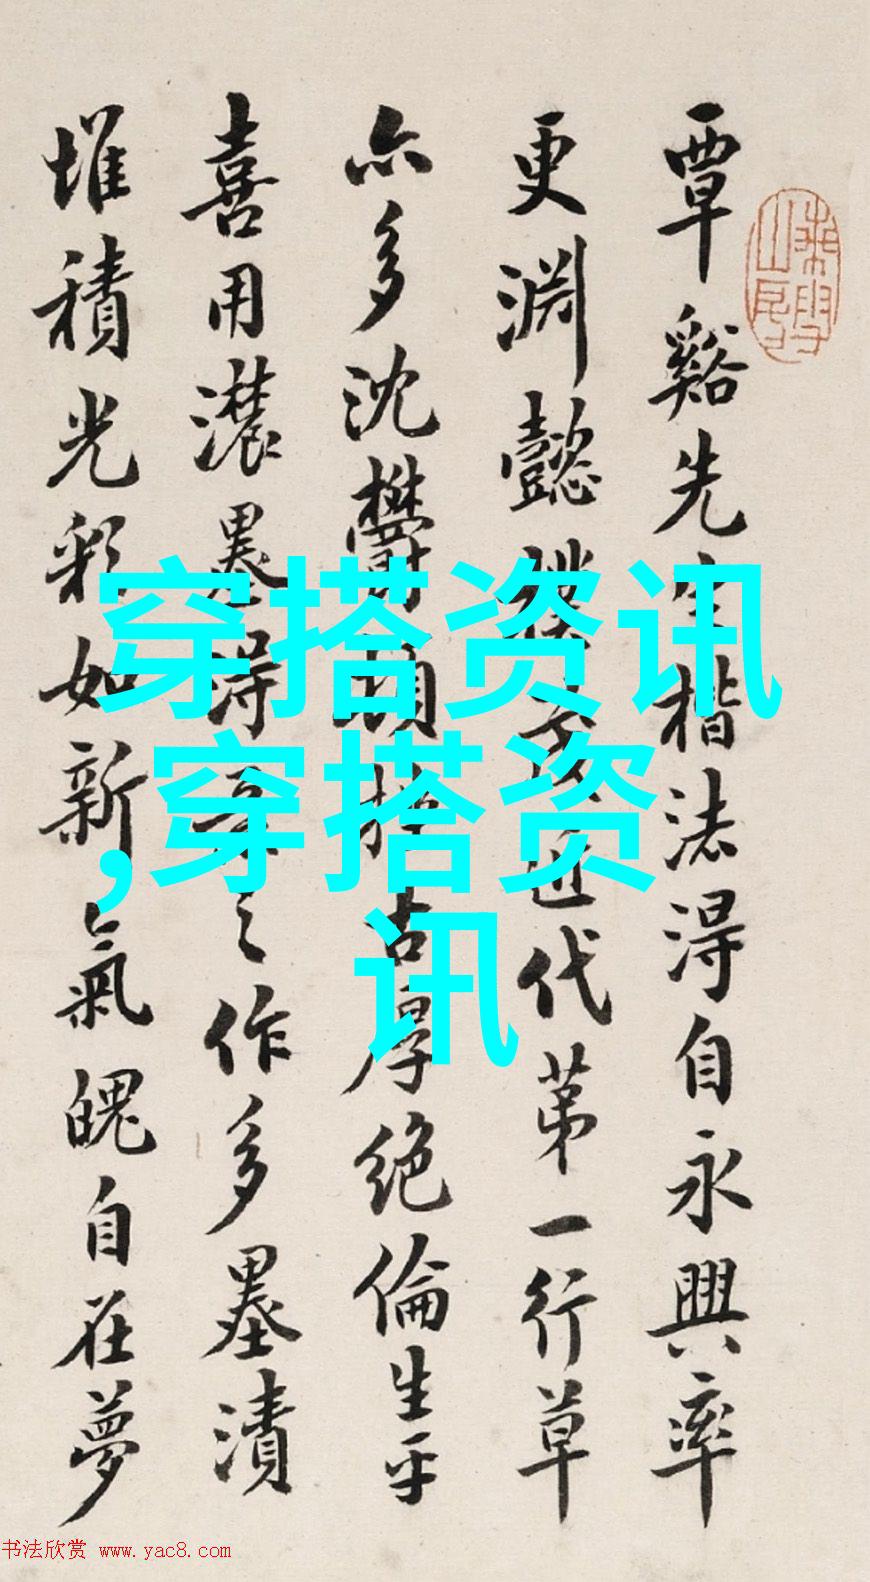 覃谿先生楷法得自永興率
更淵懿樸近代第一行草
亦多沈鬱頓挫古厚絕倫生平
喜用濃墨得之作多墨漬
堆積光彩如新氣魄自在夢
穿搭资讯
,穿搭资
讯
书法欣赏 www.yac8.com